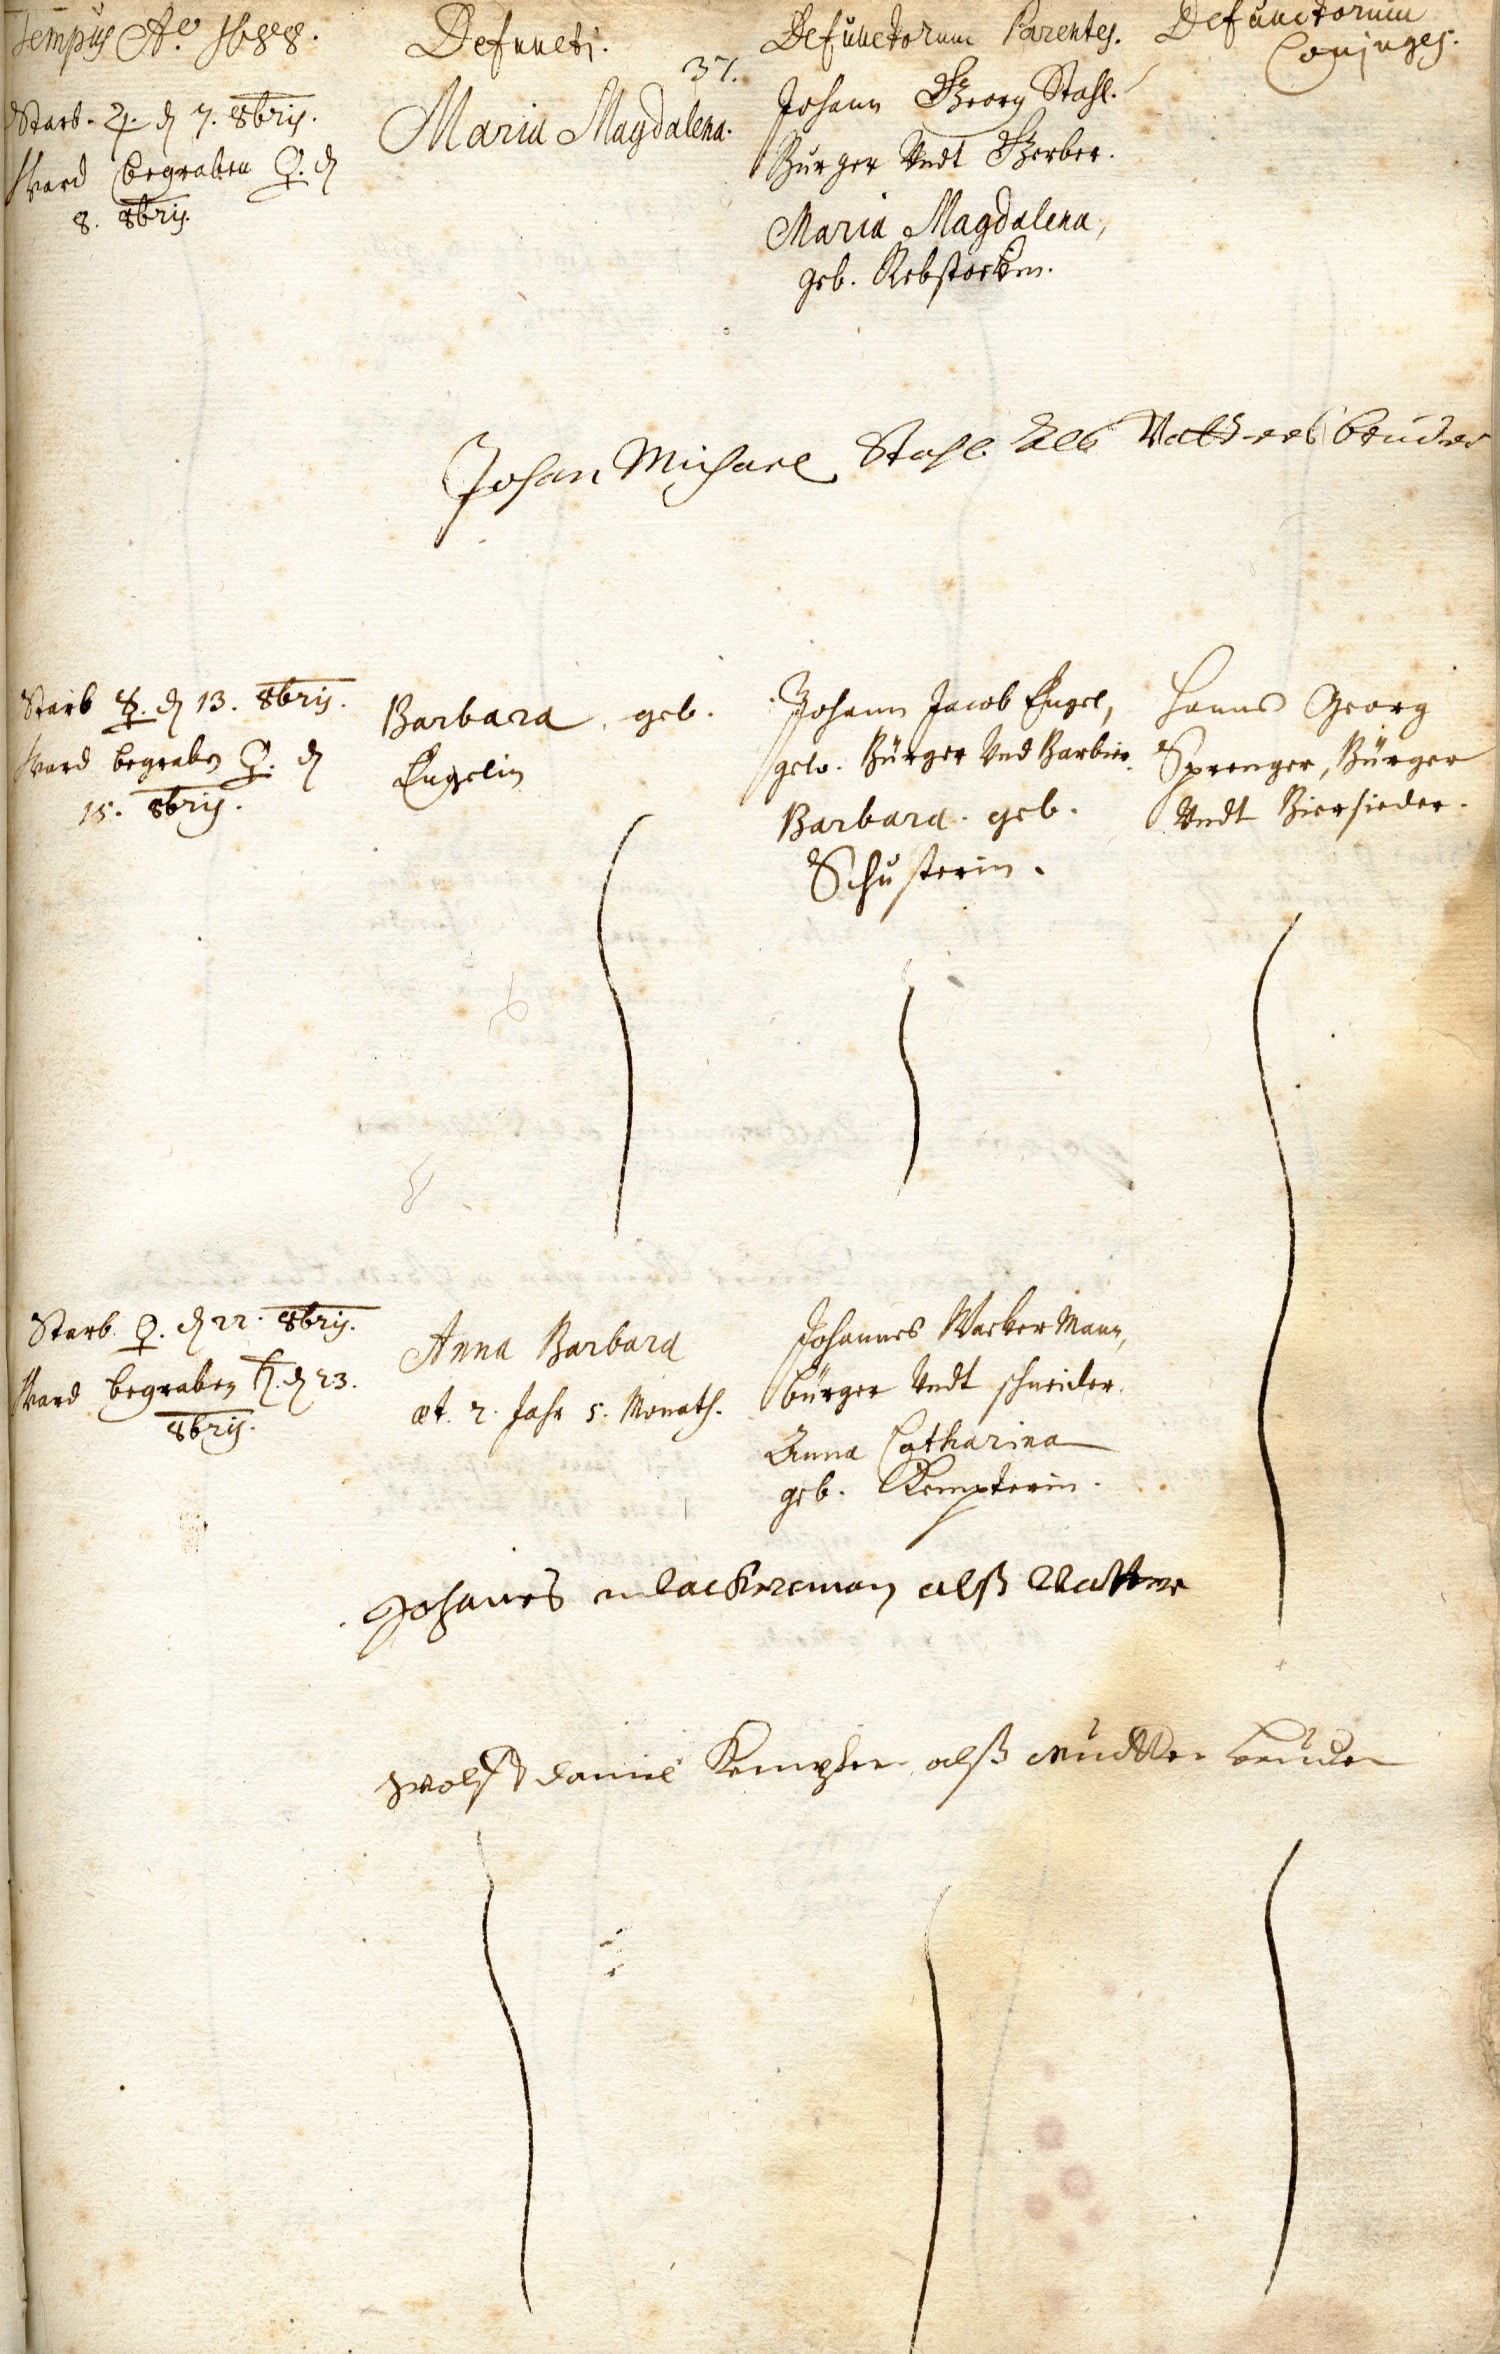 Tempus Ao 1688.
Defuncti.
Defunctorum Parentes.
Defunctorum
Conjuges.
37.
Starb. ♃. d 7. 8bris.
Ward begraben ♀. d
8. 8bris.
Maria Magdalena.
Johann Georg Stahl.
Burger Undt Gerber.
Maria Magdalena,
geb. Rebstockin.
Johan Michael Stahl als Vatters bruder
Starb ☿. d 13. 8bris.
Ward begraben ♀. d
15. 8bris.
Barbara geb.
Engelin
Johann Jacob Engel,
gew. Bürger Und Barbier.
Barbara. geb.
Schusterin.
Hanns Georg
Sprenger, Bürger
Undt Biersieder.
Starb. ♀. d 22. 8bris.
Ward begraben ♄. d 23.
8bris.
Anna Barbara
æt. 2. Jahr 5. Monath.
Johannes Wacker Mann,
bürger Undt schneider.
Anna Catharina
geb. Kempterin.
Johanes wackerman alß Vatter
Wolff daniel Kempter alß muetter bruder